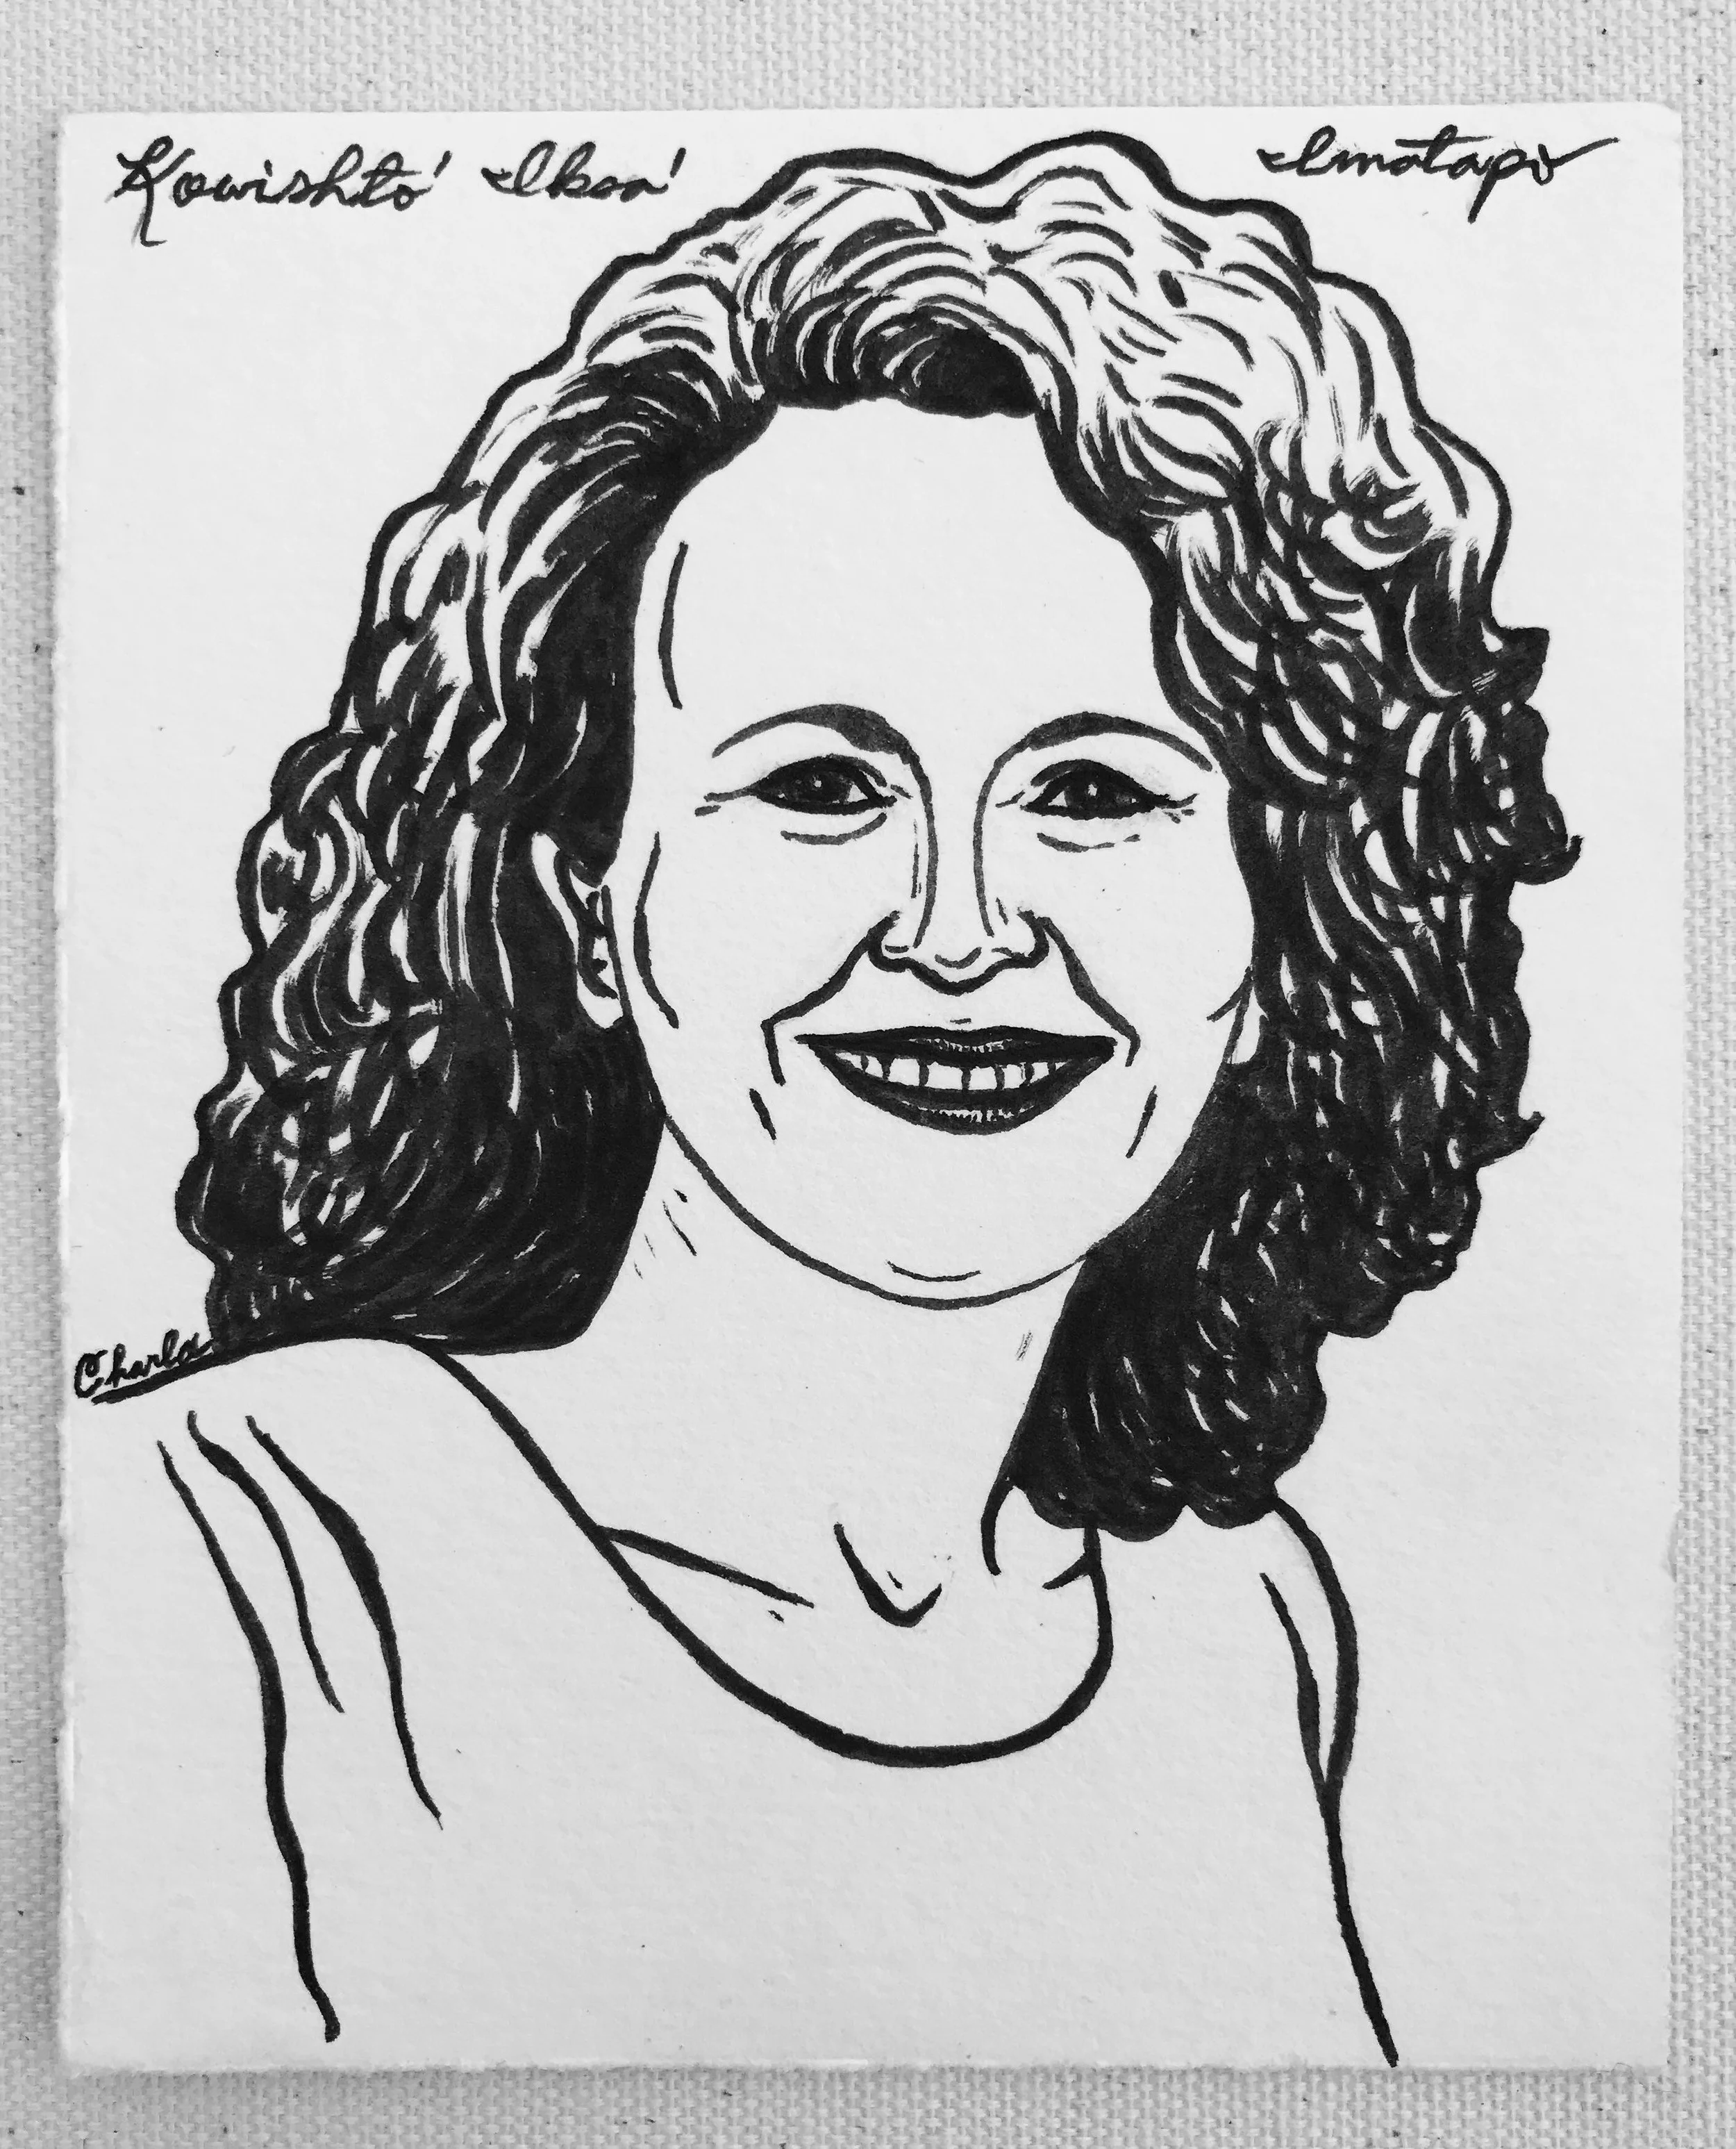 Kowishto' Iksa' Imatapo
Charla